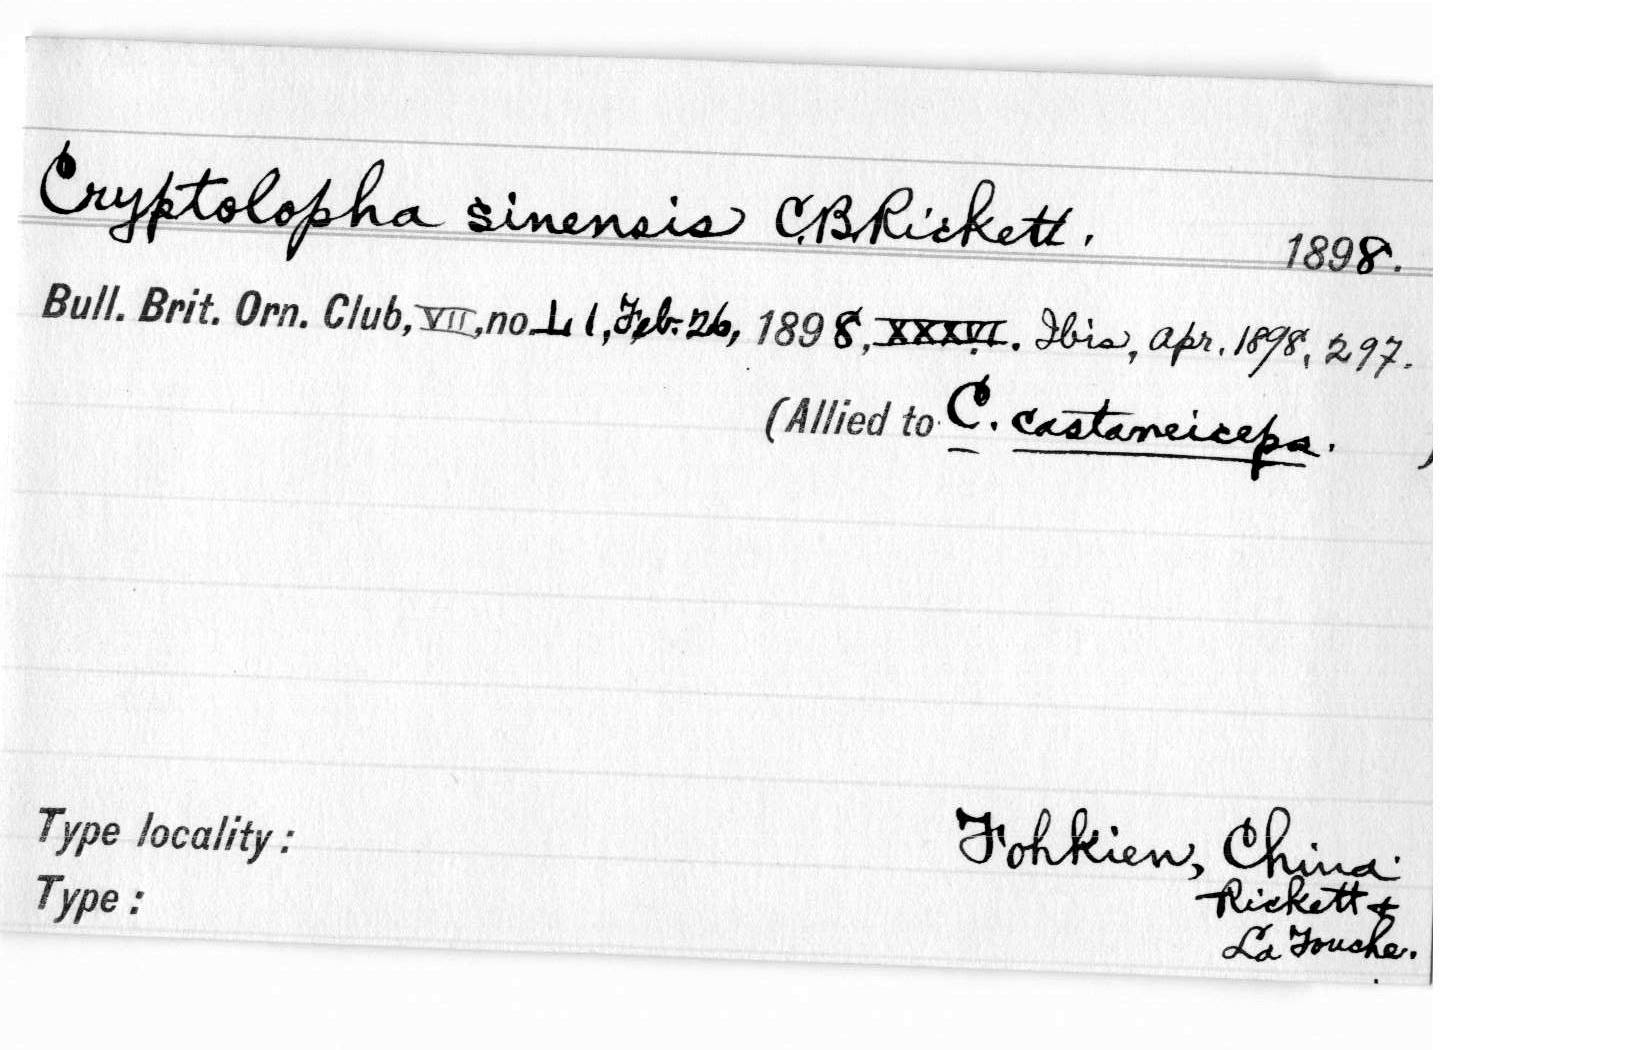 Cryptolopha sinensis C.B.Rickett. 1898.
Bull. Brit. Orn. Club, VII, no. L I, Feb. 26, 1898, XXXVI. Ibis, Apr. 1898, 297.
(Allied to C. castaneiceps. )
Type locality: Fohkien, China.
Type: Rickett &
La Touche.